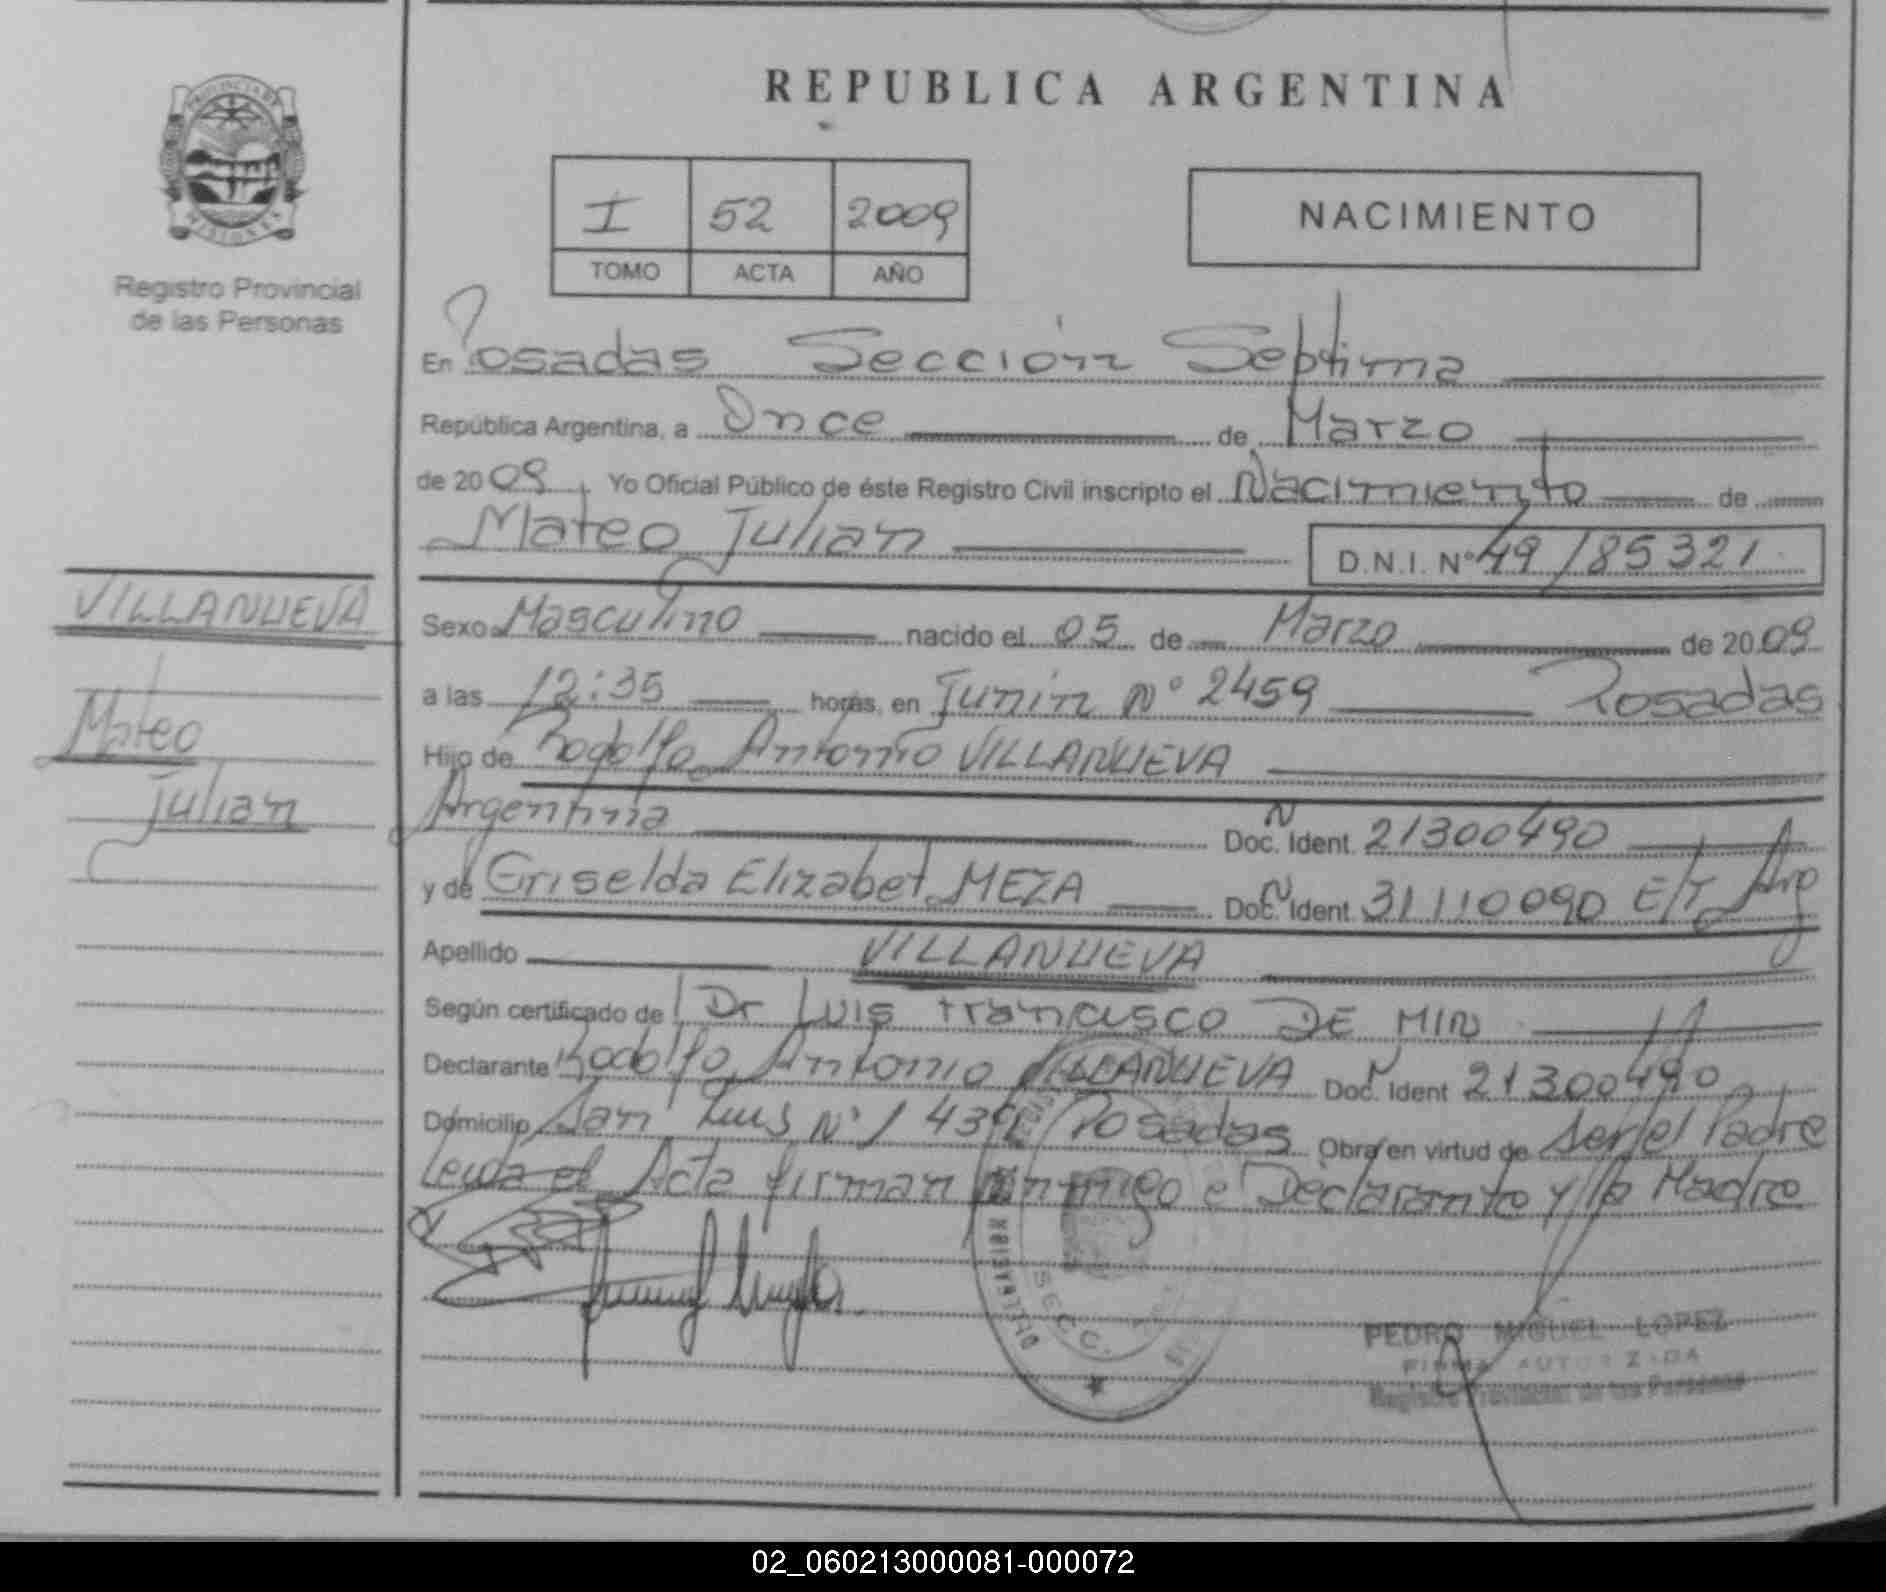 REPUBLICA ARGENTINA
PROVINCIA DE
MISIONES
Registro Provincial
de las Personas
I 52 2009
TOMO ACTA AÑO
NACIMIENTO
En Posadas Sección Septima
República Argentina, a Once de Marzo
de 2009, Yo Oficial Público de éste Registro Civil inscripto el Nacimiento de
Mateo Julian D.N.I. Nº 49185321
VILLANUEVA
Mateo
Julian
Sexo Masculino nacido el 05 de Marzo de 2009
a las 12:35 horas, en Junin Nº 2459 Posadas
Hijo de Rodolfo Antonio VILLANUEVA
Argentina Doc. Ident. 21300490
y de Griselda Elizabet MEZA Doc. Ident. 31110090 E/T Arg
Apellido VILLANUEVA
Según certificado de Dr Luis Francisco DE MIN
Declarante Rodolfo Antonio VILLANUEVA Doc. Ident 21300490
Domicilio San Luis Nº 1439 Posadas Obra en virtud de ser el Padre
Leida el Acta firman conmigo e Declarante y la Madre
SECC.
PEDRO MIGUEL LOPEZ
FIRMA AUTORIZADA
Registro Provincial de las Personas
02_060213000081-000072